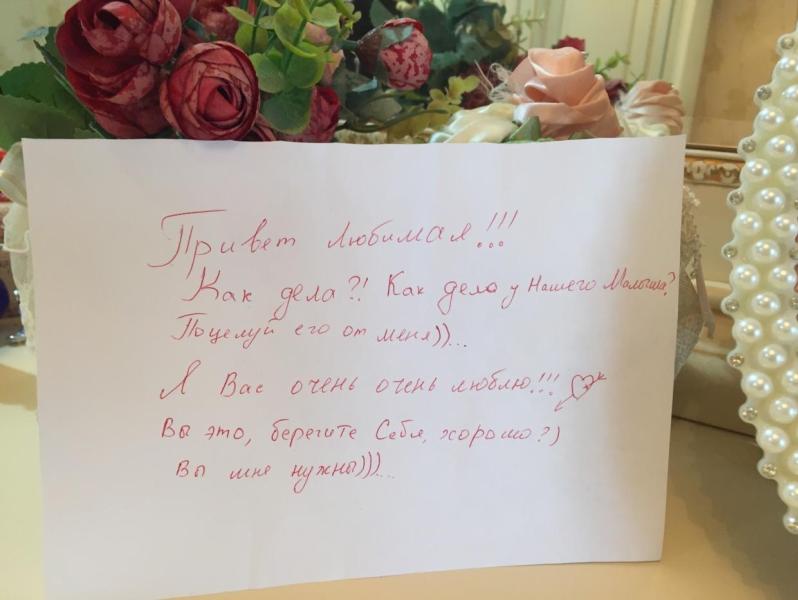 Привет Любимая!!!
Как дела?! Как дела у Нашего Малыша?
Поцелуй его от меня))...
Я Вас очень очень люблю!!!
Вы это, берегите Себя, хорошо?)
Вы мне нужны)))...